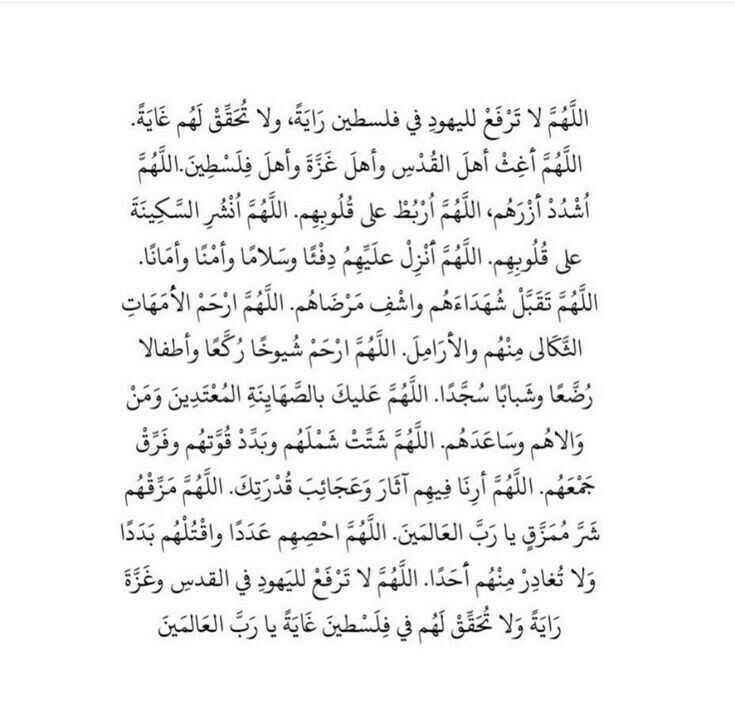 اللَّهُمَّ لا تَرْفَعْ لليهودِ في فلسطين رَايَةً، ولا تُحَقِّقْ لَهُم غَايَةً.
اللَّهُمَّ أغِثْ أهلَ القُدْسِ وأهلَ غَزَّةَ وأهلَ فِلَسْطِينَ.اللَّهُمَّ
اُشْدُدْ أزْرَهُم، اللَّهُمَّ اُرْبُطْ على قُلُوبِهِم. اللَّهُمَّ اُنْشُرِ السَّكِينَةَ
على قُلُوبِهِم. اللَّهُمَّ أنْزِلْ علَيِّهِمُ دِفْئًا وَسَلامًا وأمْنًا وأمَانًا.
اللَّهُمَّ تَقَبَّلْ شُهَدَاءَهُم واشْفِ مَرْضَاهُم. اللَّهُمَّ ارْحَمْ الأمَهَاتِ
الثَّكَالى مِنْهُم والأرَامِلَ. اللَّهُمَّ ارْحَمْ شُيوخًا رُكَّعًا وأطفالا
رُضَّعًا وشَبابًا سُجَّدًا. اللَّهُمَّ عَليكَ بالصَّهَايِنَةِ المُعْتَدِينَ وَمَنْ
وَالاهُم وسَاعَدَهُم. اللَّهُمَّ شَتَّتْ شَمْلَهُم وبَدِّدْ قُوَّتهُم وفَرِّقْ
جَمْعَهُم. اللَّهُمَّ أرِنَا فِيهِم آثَارَ وَعَجَائِبَ قُدْرَتِكَ. اللَّهُمَّ مَزِّقْهُم
شَرَّ مُمَزَّقٍ يا رَبَّ العَالمَينَ. اللَّهُمَّ احْصِهِم عَدَدًا واقْتُلْهُم بَدَدًا
وَلا تُغادِرْ مِنْهُم أحَدًا. اللَّهُمَّ لا تَرْفَعْ لليَهودِ في القدسِ وغَزَّةَ
رَايَةً وَلا تُحَقِّقْ لَهُم في فِلَسْطينَ غَايَةً يا رَبَّ العَالمَينَ